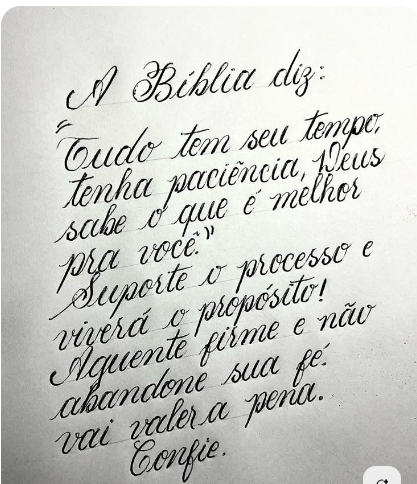 A Bíblia diz:
"Tudo tem seu tempo,
tenha paciência, Deus
sabe o que é melhor
pra você."
Suporte o processo e
viverá o propósito!
Aguente firme e não
abandone sua fé.
vai valer a pena.
Confie.